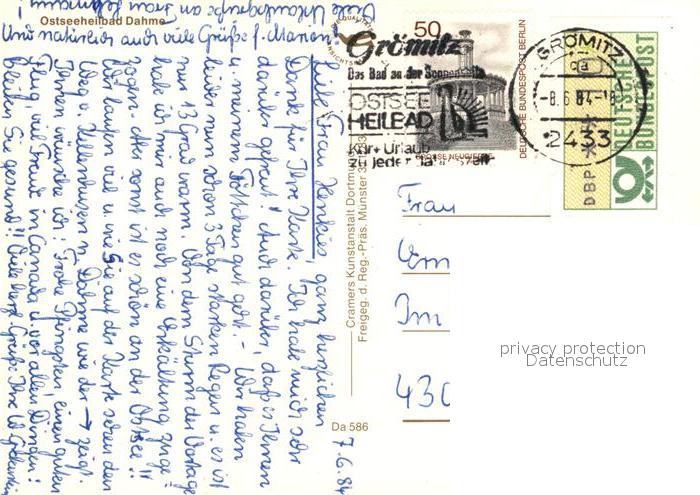 Ostseeheilbad Dahme
Viele Urlaubsgrüße an Frau
Und natürlich auch viele Grüße f.
7.6.84
Liebe Frau Henkies, ganz herzlichen
Dank für Ihre Karte. Ich habe mich sehr
darüber gefreut! Auch darüber, daß es Ihnen
u. meinem gut geht. - Wir haben
leider nun schon 3 Tage starken Regen u. es ist
nur 13 Grad warm. Von dem Sturm der Vortage
habe ich mir auch noch eine Erkältung zuge-
zogen. Aber sonst ist es schön an der Ostsee!!
Wir laufen viel u. wie Sie auf der Karte sehen den
Weg Kellenhusen n. Dahme wie der → zeigt.
Ihnen wünsche ich: Frohe Pfingsten, einen guten
Flug, viel Freude in Canada u. vor allen Dingen:
bleiben Sie gesund!! Viele herzl. Grüße Ihre
Cramers Kunstanstalt Dortmund
Freigeg. d. Reg.-Präs. Münster
Da 586
50
DEUTSCHE BUNDESPOST BERLIN
GROSSE NEUGIERDE
Grömitz
Das Bad an der Sonnenseite
OSTSEE
HEILBAD
Kur+Urlaub
zu jeder
GRÖMITZ
-8.6.84-18
2433
DBP
DEUTSCHE
BUNDESPOST
Frau
Em
Im
430
privacy protection
Datenschutz